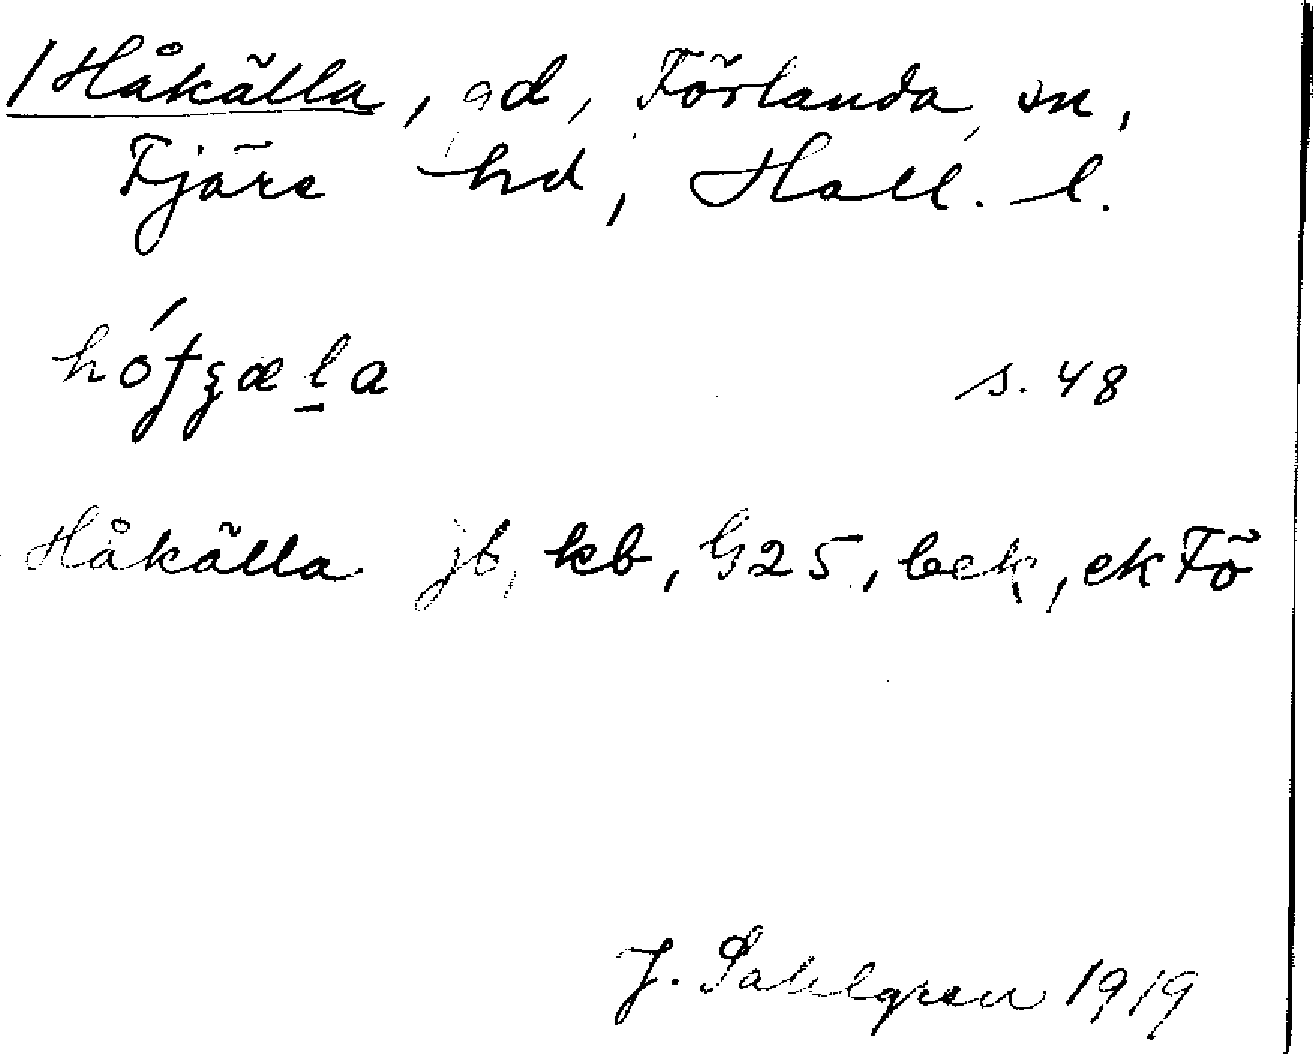 / Håkälla, gd, Förlanda sn,
Fjäre hd, Hall. l.
hófgæl̲a s. 48
Håkälla jb, kb, G25, bek, ek Fö
J. Sahlgren 1919